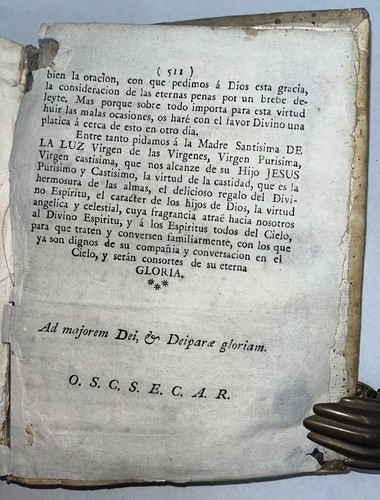 ( 511 )
bien la oracion, con que pedimos á Dios esta gracia,
la consideracion de las eternas penas por un brebe de-
leyte. Mas porque sobre todo importa para esta virtud
huir las malas ocasiones, os haré con el favor Divino una
platica á cerca de esto en otro dia.
Entre tanto pidamos á la Madre Santisima DE
LA LUZ Virgen de las Virgenes, Virgen Purisima,
Virgen castisima, que nos alcanze de su Hijo JESUS
Purisimo y Castisimo, la virtud de la castidad, que es la
hermosura de las almas, el delicioso regalo del Divi-
no Espiritu, el caracter de los hijos de Dios, la virtud
angelica y celestial, cuya fragrancia atraë hacia nosotros
al Divino Espiritu, y á los Espiritus todos del Cielo,
para que traten y conversen familiarmente, con los que
ya son dignos de su compañia y conversacion en el
Cielo, y serán consortes de su eterna
GLORIA.
***
Ad majorem Dei, & Deiparæ gloriam.
O. S. C. S. E. C. A. R.